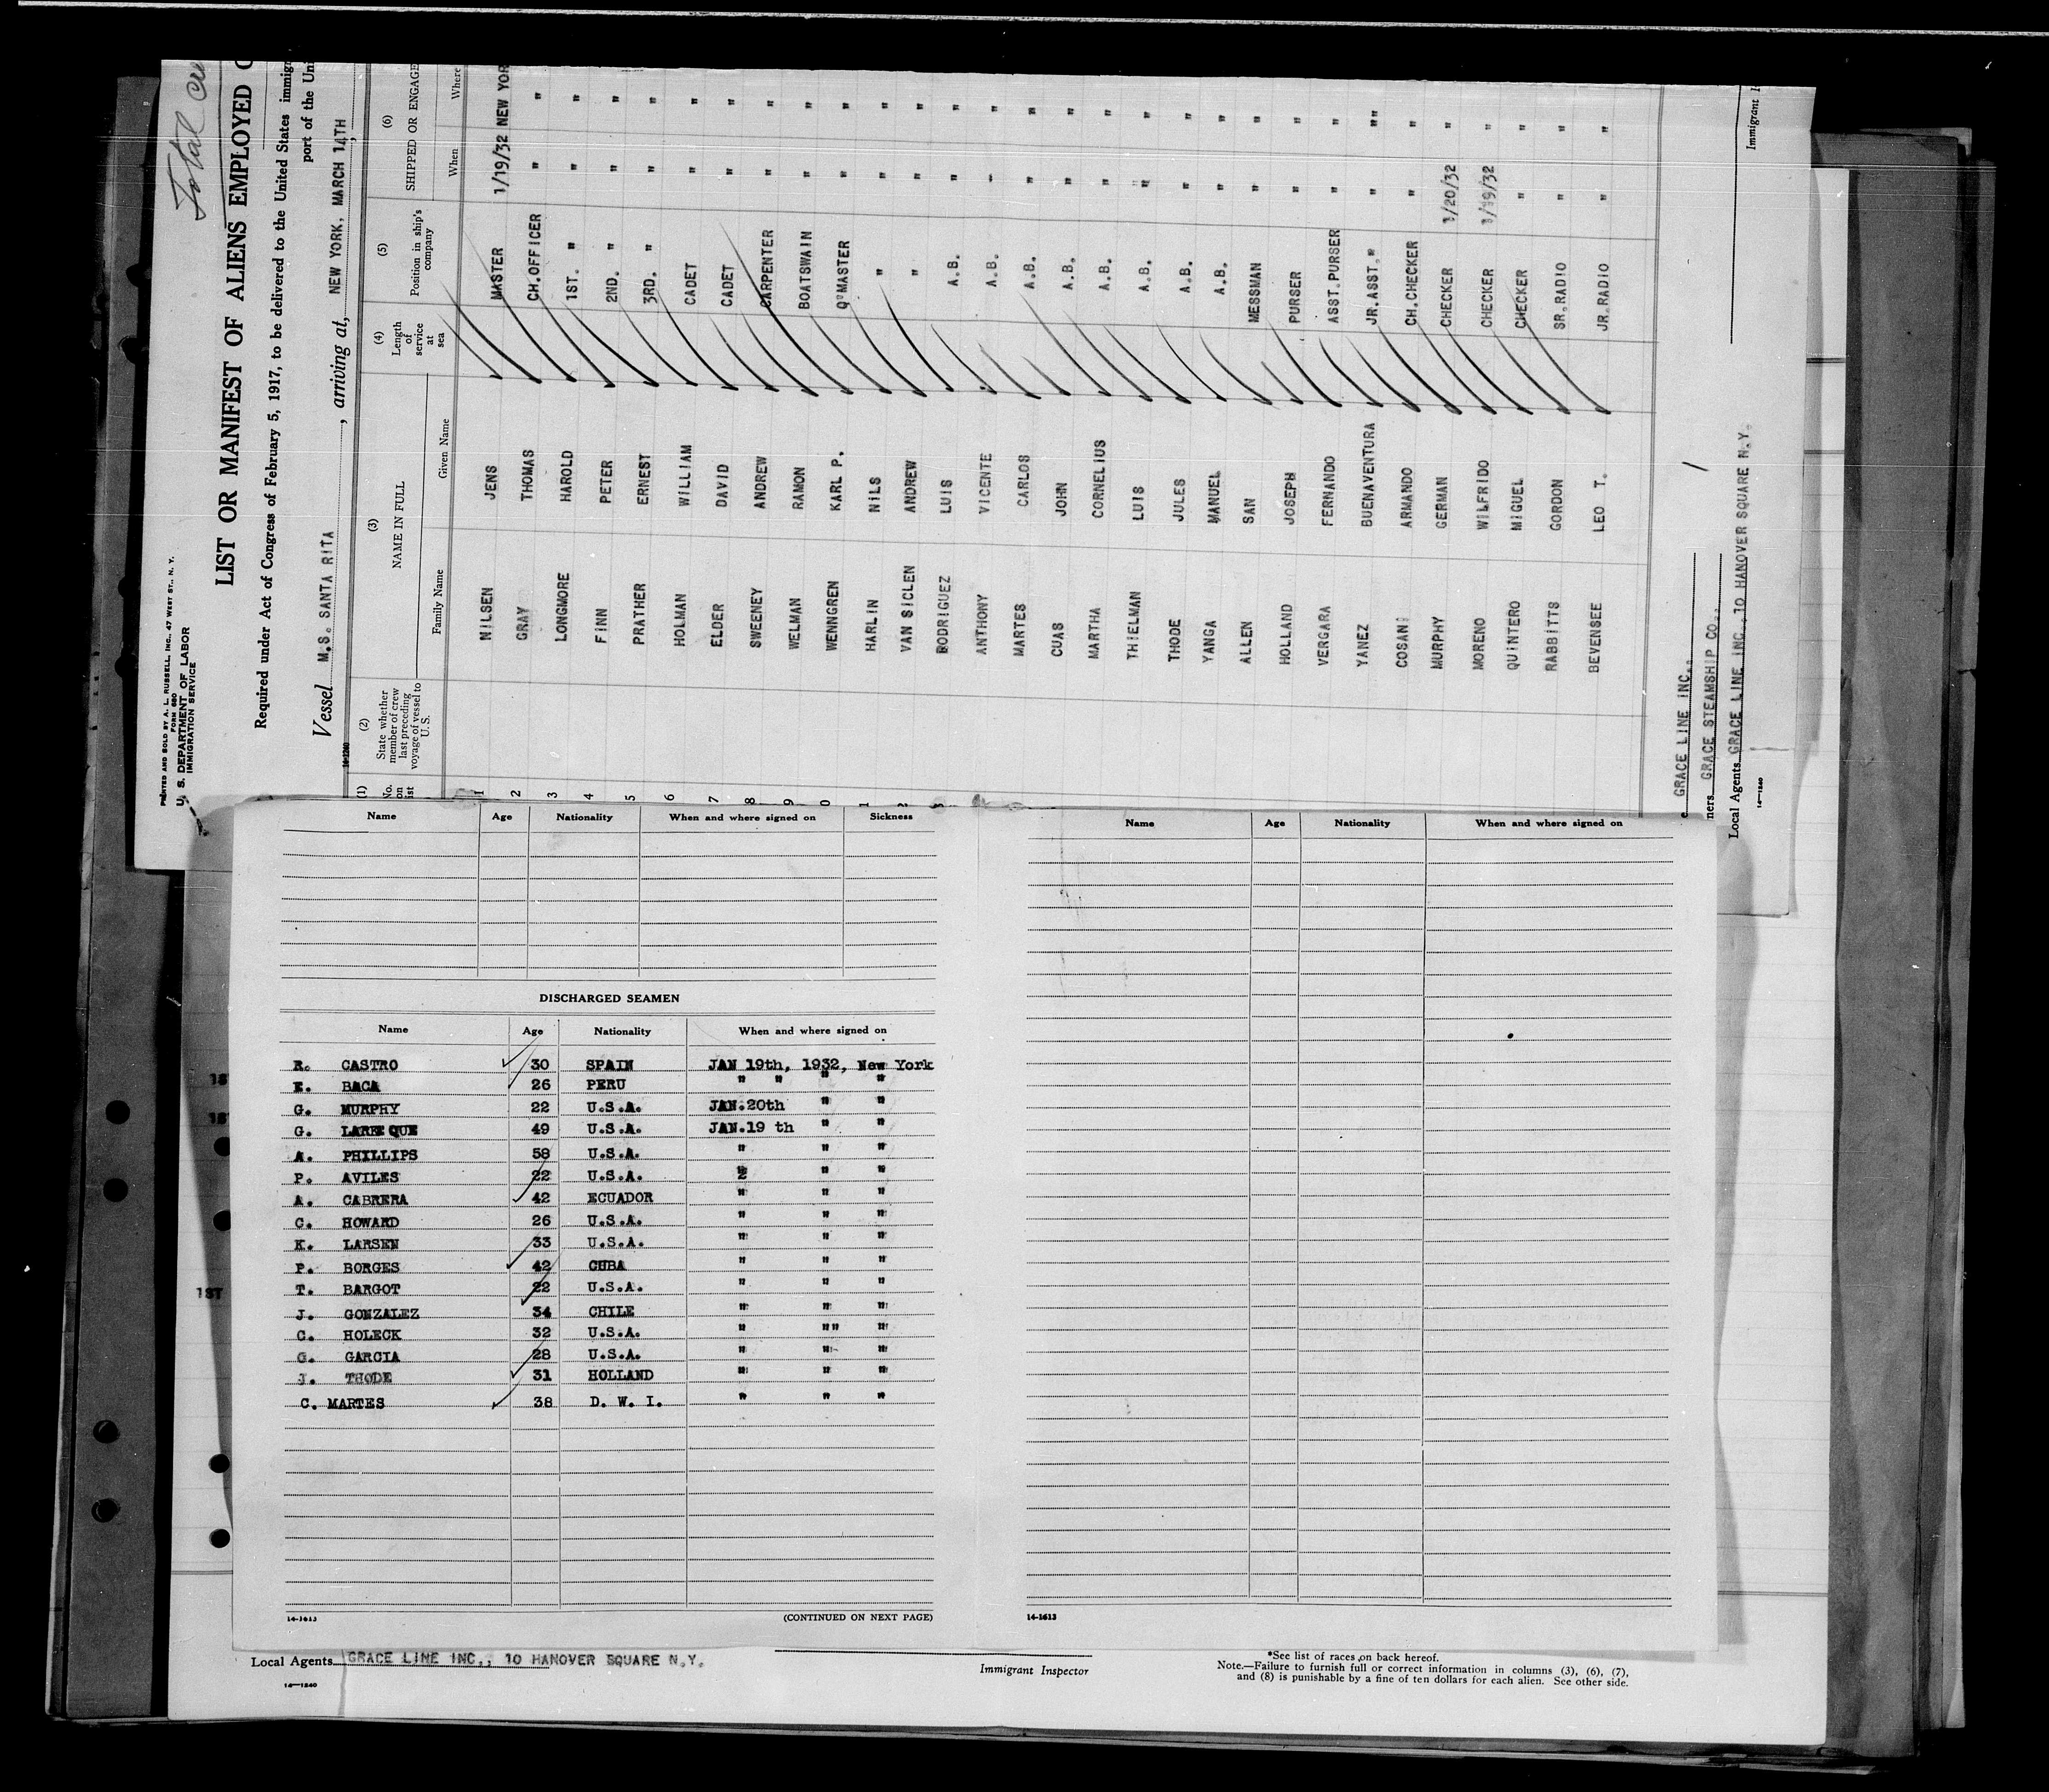 Total
PRINTED AND SOLD BY A. L. RUSSELL, INC., 47 WEST ST., N. Y.
FORM 680
U. S. DEPARTMENT OF LABOR
IMMIGRATION SERVICE
LIST OR MANIFEST OF ALIENS EMPLOYED
Required under Act of Congress of February 5, 1917, to be delivered to the United States immigr
port of the Uni
Vessel M.S. SANTA RITA, arriving at, NEW YORK, MARCH 14TH
14-1240
(1) (2) (3) (4) (5) (6)
No. on list State whether member of crew last preceding voyage of vessel to U. S. NAME IN FULL Length of service at sea Position in ship's company SHIPPED OR ENGAGE
Family Name Given Name When Where
1 NILSEN JENS MASTER 1/19/32 NEW YOR
2 GRAY THOMAS CH.OFFICER " "
3 LONGMORE HAROLD 1ST. " " "
4 FINN PETER 2ND. " " "
5 PRATHER ERNEST 3RD. " " "
6 HOLMAN WILLIAM CADET " "
7 ELDER DAVID CADET " "
8 SWEENEY ANDREW CARPENTER " "
9 WELMAN RAMON BOATSWAIN " "
0 WENNGREN KARL P. Q'MASTER " "
1 HARLIN NILS " " "
2 VAN SICLEN ANDREW " " "
3 RODRIGUEZ LUIS A.B. " "
ANTHONY VICENTE A.B. " "
MARTES CARLOS A.B. " "
CUAS JOHN A.B. " "
MARTHA CORNELIUS A.B. " "
THIELMAN LUIS A.B. " "
THODE JULES A.B. " "
YANGA MANUEL A.B. " "
ALLEN SAN MESSMAN " "
HOLLAND JOSEPH PURSER " "
VERGARA FERNANDO ASST.PURSER " "
YANEZ BUENAVENTURA JR.ASST." " ""
COSANI ARMANDO CH.CHECKER " "
MURPHY GERMAN CHECKER 1/20/32 "
MORENO WILFRIDO CHECKER 1/19/32 "
QUINTERO MIGUEL CHECKER " "
RABBITS GORDON SR.RADIO " "
BEVENSEE LEO T. JR.RADIO " "
GRACE LINE INC.
ners GRACE STEAMSHIP CO.
Local Agents GRACE LINE INC., 10 HANOVER SQUARE N.Y.
Immigrant I
14-1240
Name Age Nationality When and where signed on Sickness
DISCHARGED SEAMEN
Name Age Nationality When and where signed on
R. CASTRO 30 SPAIN JAN 19th, 1932, New York
E. BACA 26 PERU " " " "
G. MURPHY 22 U.S.A. JAN.20th " "
G. LARREQUE 49 U.S.A. JAN.19 th " "
A. PHILLIPS 58 U.S.A. " " "
P. AVILES 22 U.S.A. " " "
A. CABRERA 42 ECUADOR " " "
C. HOWARD 26 U.S.A. " " "
K. LARSEN 33 U.S.A. " " "
P. BORGES 42 CUBA " " "
T. BARGOT 22 U.S.A. " " "
J. GONZALEZ 34 CHILE " " "
C. HOLECK 32 U.S.A. " "" "
G. GARCIA 28 U.S.A. " " "
J. THODE 31 HOLLAND " " "
C. MARTES 38 D. W. I. " " "
14-1613 (CONTINUED ON NEXT PAGE)
Name Age Nationality When and where signed on
14-1613
1ST
Local Agents GRACE LINE INC., 10 HANOVER SQUARE N.Y.
14-1240
Immigrant Inspector
*See list of races on back hereof.
Note.—Failure to furnish full or correct information in columns (3), (6), (7),
and (8) is punishable by a fine of ten dollars for each alien. See other side.